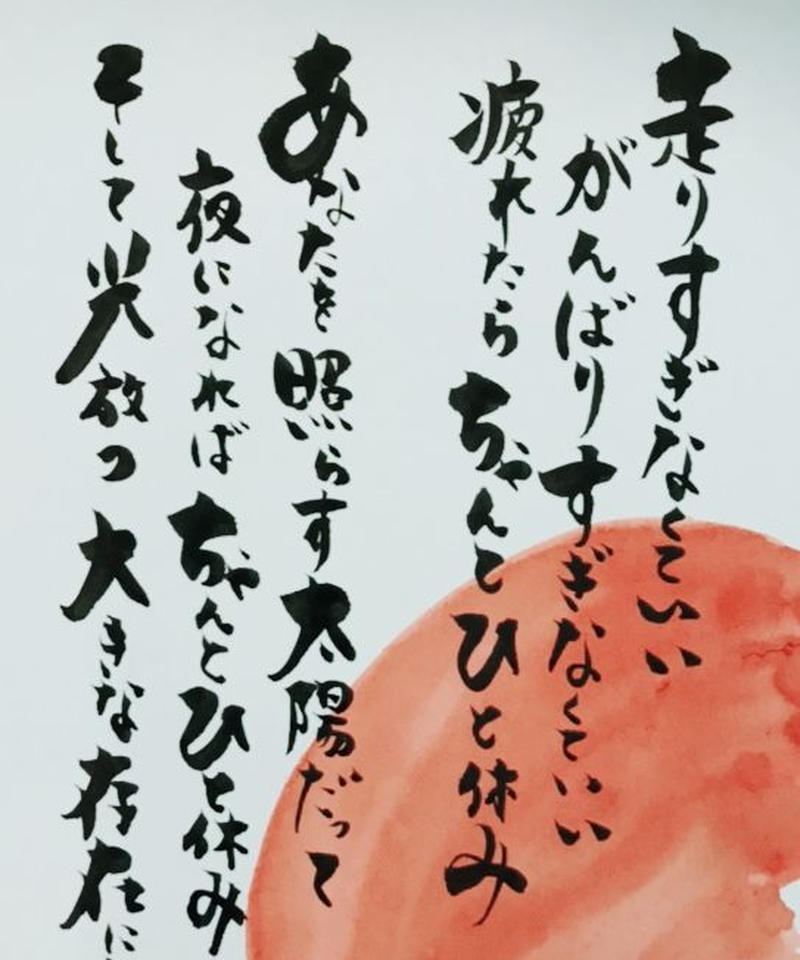 走りすぎなくていい
がんばりすぎなくていい
疲れたらちゃんとひと休み
あなたを照らす太陽だって
夜になればちゃんとひと休み
そして光放つ大きな存在に